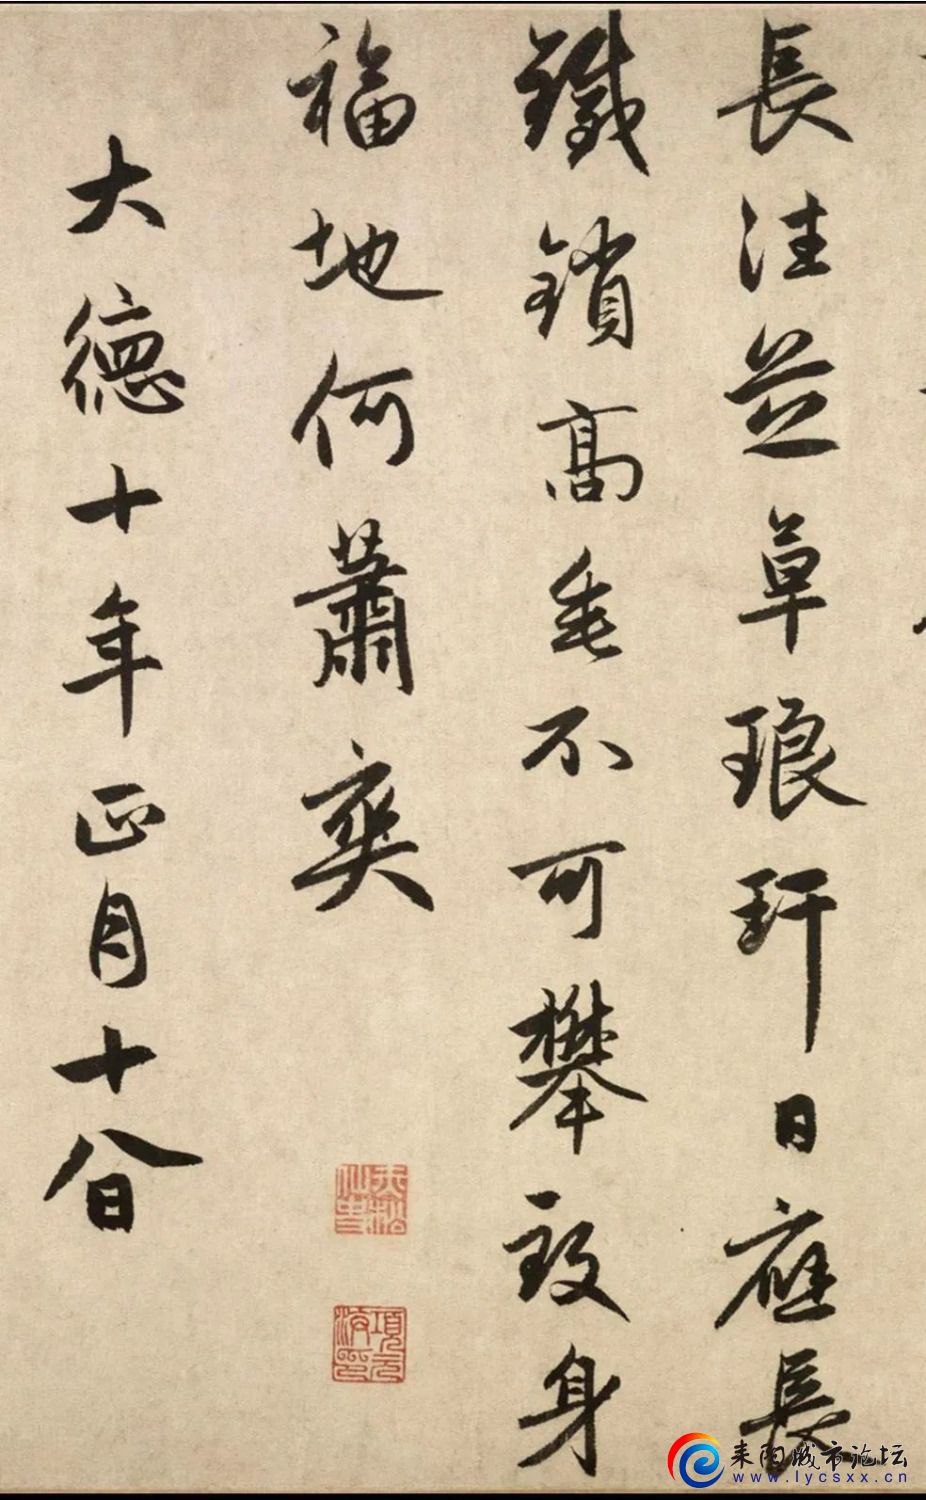 長往芝草琅玕日應長
鐵鎖高垂不可攀致身
福地何蕭爽
大德十年正月十八日
耒阳城市论坛
www.lycsxx.cn